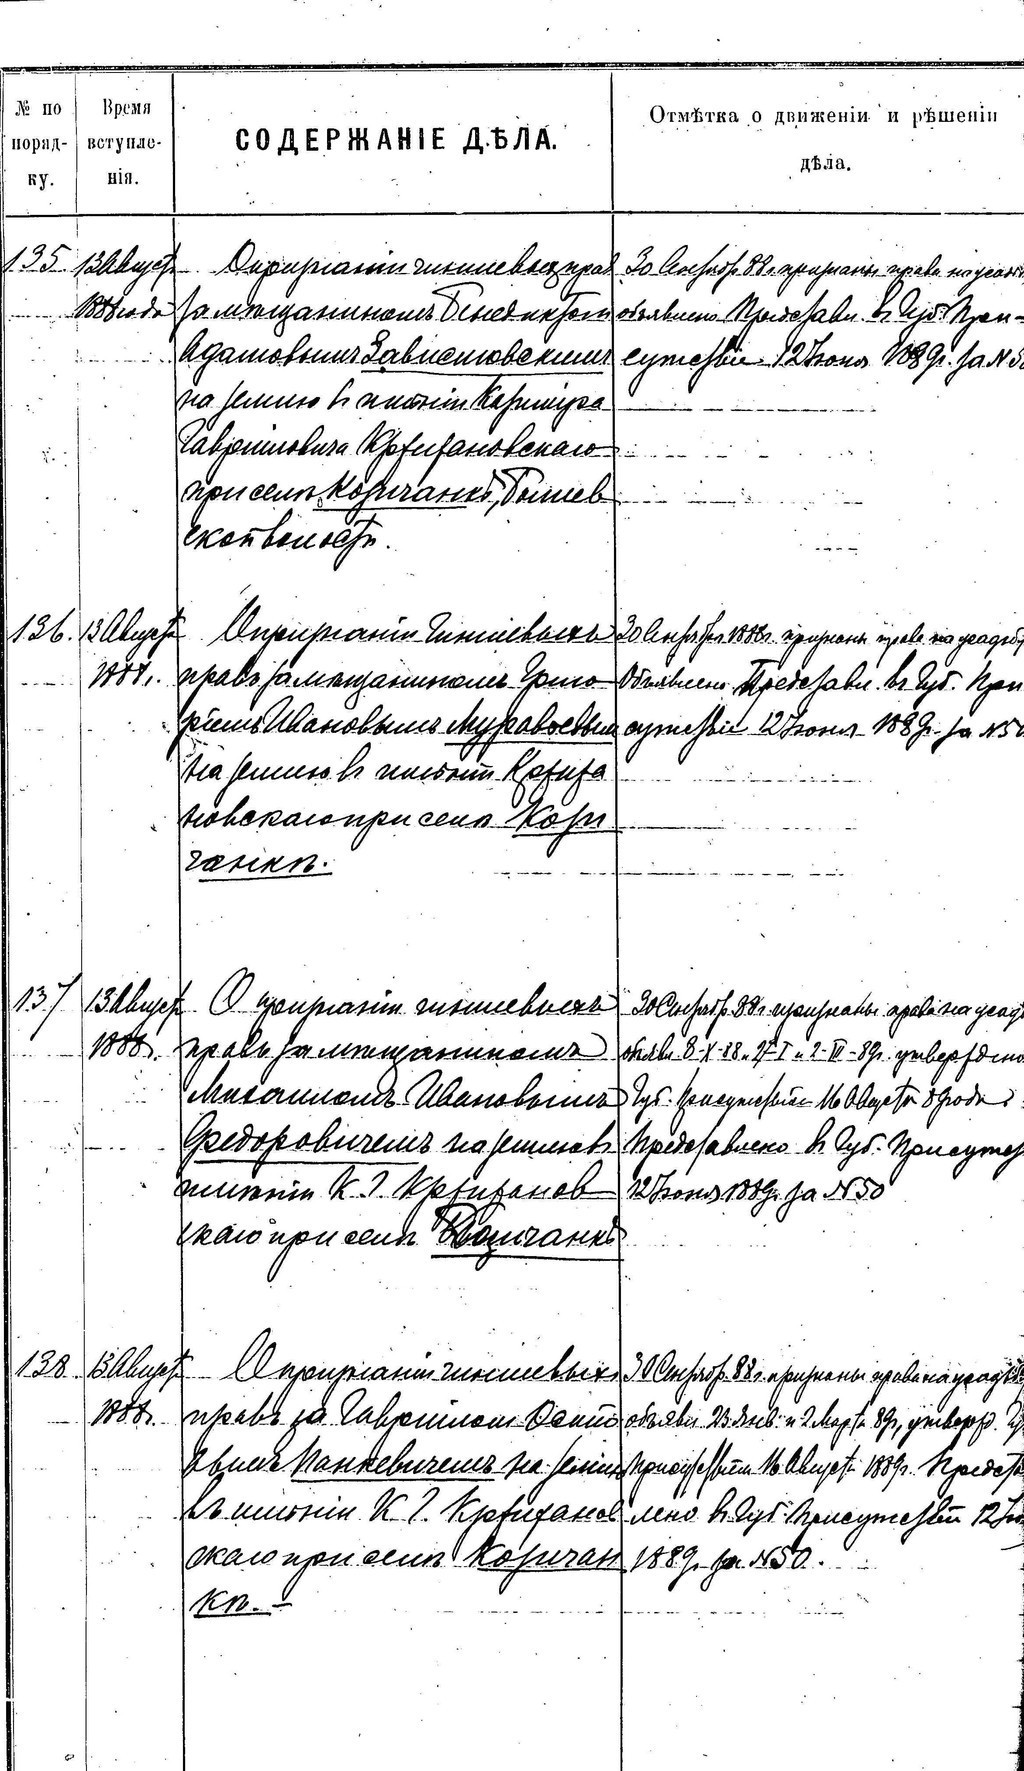 № по порядку.
Время вступленія.
СОДЕРЖАНІЕ ДѢЛА.
Отмѣтка о движеніи и рѣшеніи
дѣла.
135. 13 Август
1888 года
О признаніи чиншевыхъ прав
за мѣщаниномъ Бенедиктом
Адамовымъ Завистовскимъ
на землю въ имѣніи Казиміра
Гавриловича Кржижановскаго
при селѣ Козичанкѣ, Бышев
ской волости.
30 Сентябр. 88 г. признаны права на усадь
объявлено Представл. въ Губ. При-
сутствіе 12 Іюня 1889 г. за N 50
136. 13 Август
1888 г.
О признаніи чиншевыхъ
правъ за мѣщаниномъ Григо
ріемъ Ивановымъ Муравьевым
на землю въ имѣніи Кржижа
новскаго при селѣ Кози
чанкѣ.
30 Сентября 1888 г. признаны права на усадьб
Объявлено Представл. въ Губ. При
сутствіе 12 Іюня 1889 г. за N 50
137 13 Август
1888 г.
О признаніи чиншевыхъ
правъ за мѣщаниномъ
Михаиломъ Ивановымъ
Федоровичемъ на землю въ
имѣніи К. Г. Кржижанов
скаго при селѣ Козичанкѣ
30 Сентябр. 88 г. признаны права на усад
объявл 8-X-88 и утверждено
Губ. Присутствіем 16 Августа 89 года
Представлено въ Губ. Присутст
12 Іюня 1889 г. за N 50
138 13 Август
1888 г.
О признаніи чиншевыхъ
правъ за Гавріилом Осипо
вымъ Панкевичемъ на землю
въ имѣніи К. Г. Кржижанов
скаго при селѣ Козичан
кѣ. —
30 Сентябр. 88 г. признаны права на усад
объявл 23 Янв. и 2 Марта 89 г., утвержд. Гу
Присутствіем 16 Августа 1889 г. Представ
лено въ Губ. Присутствіе 12 Ію
1889 г. за N 50.